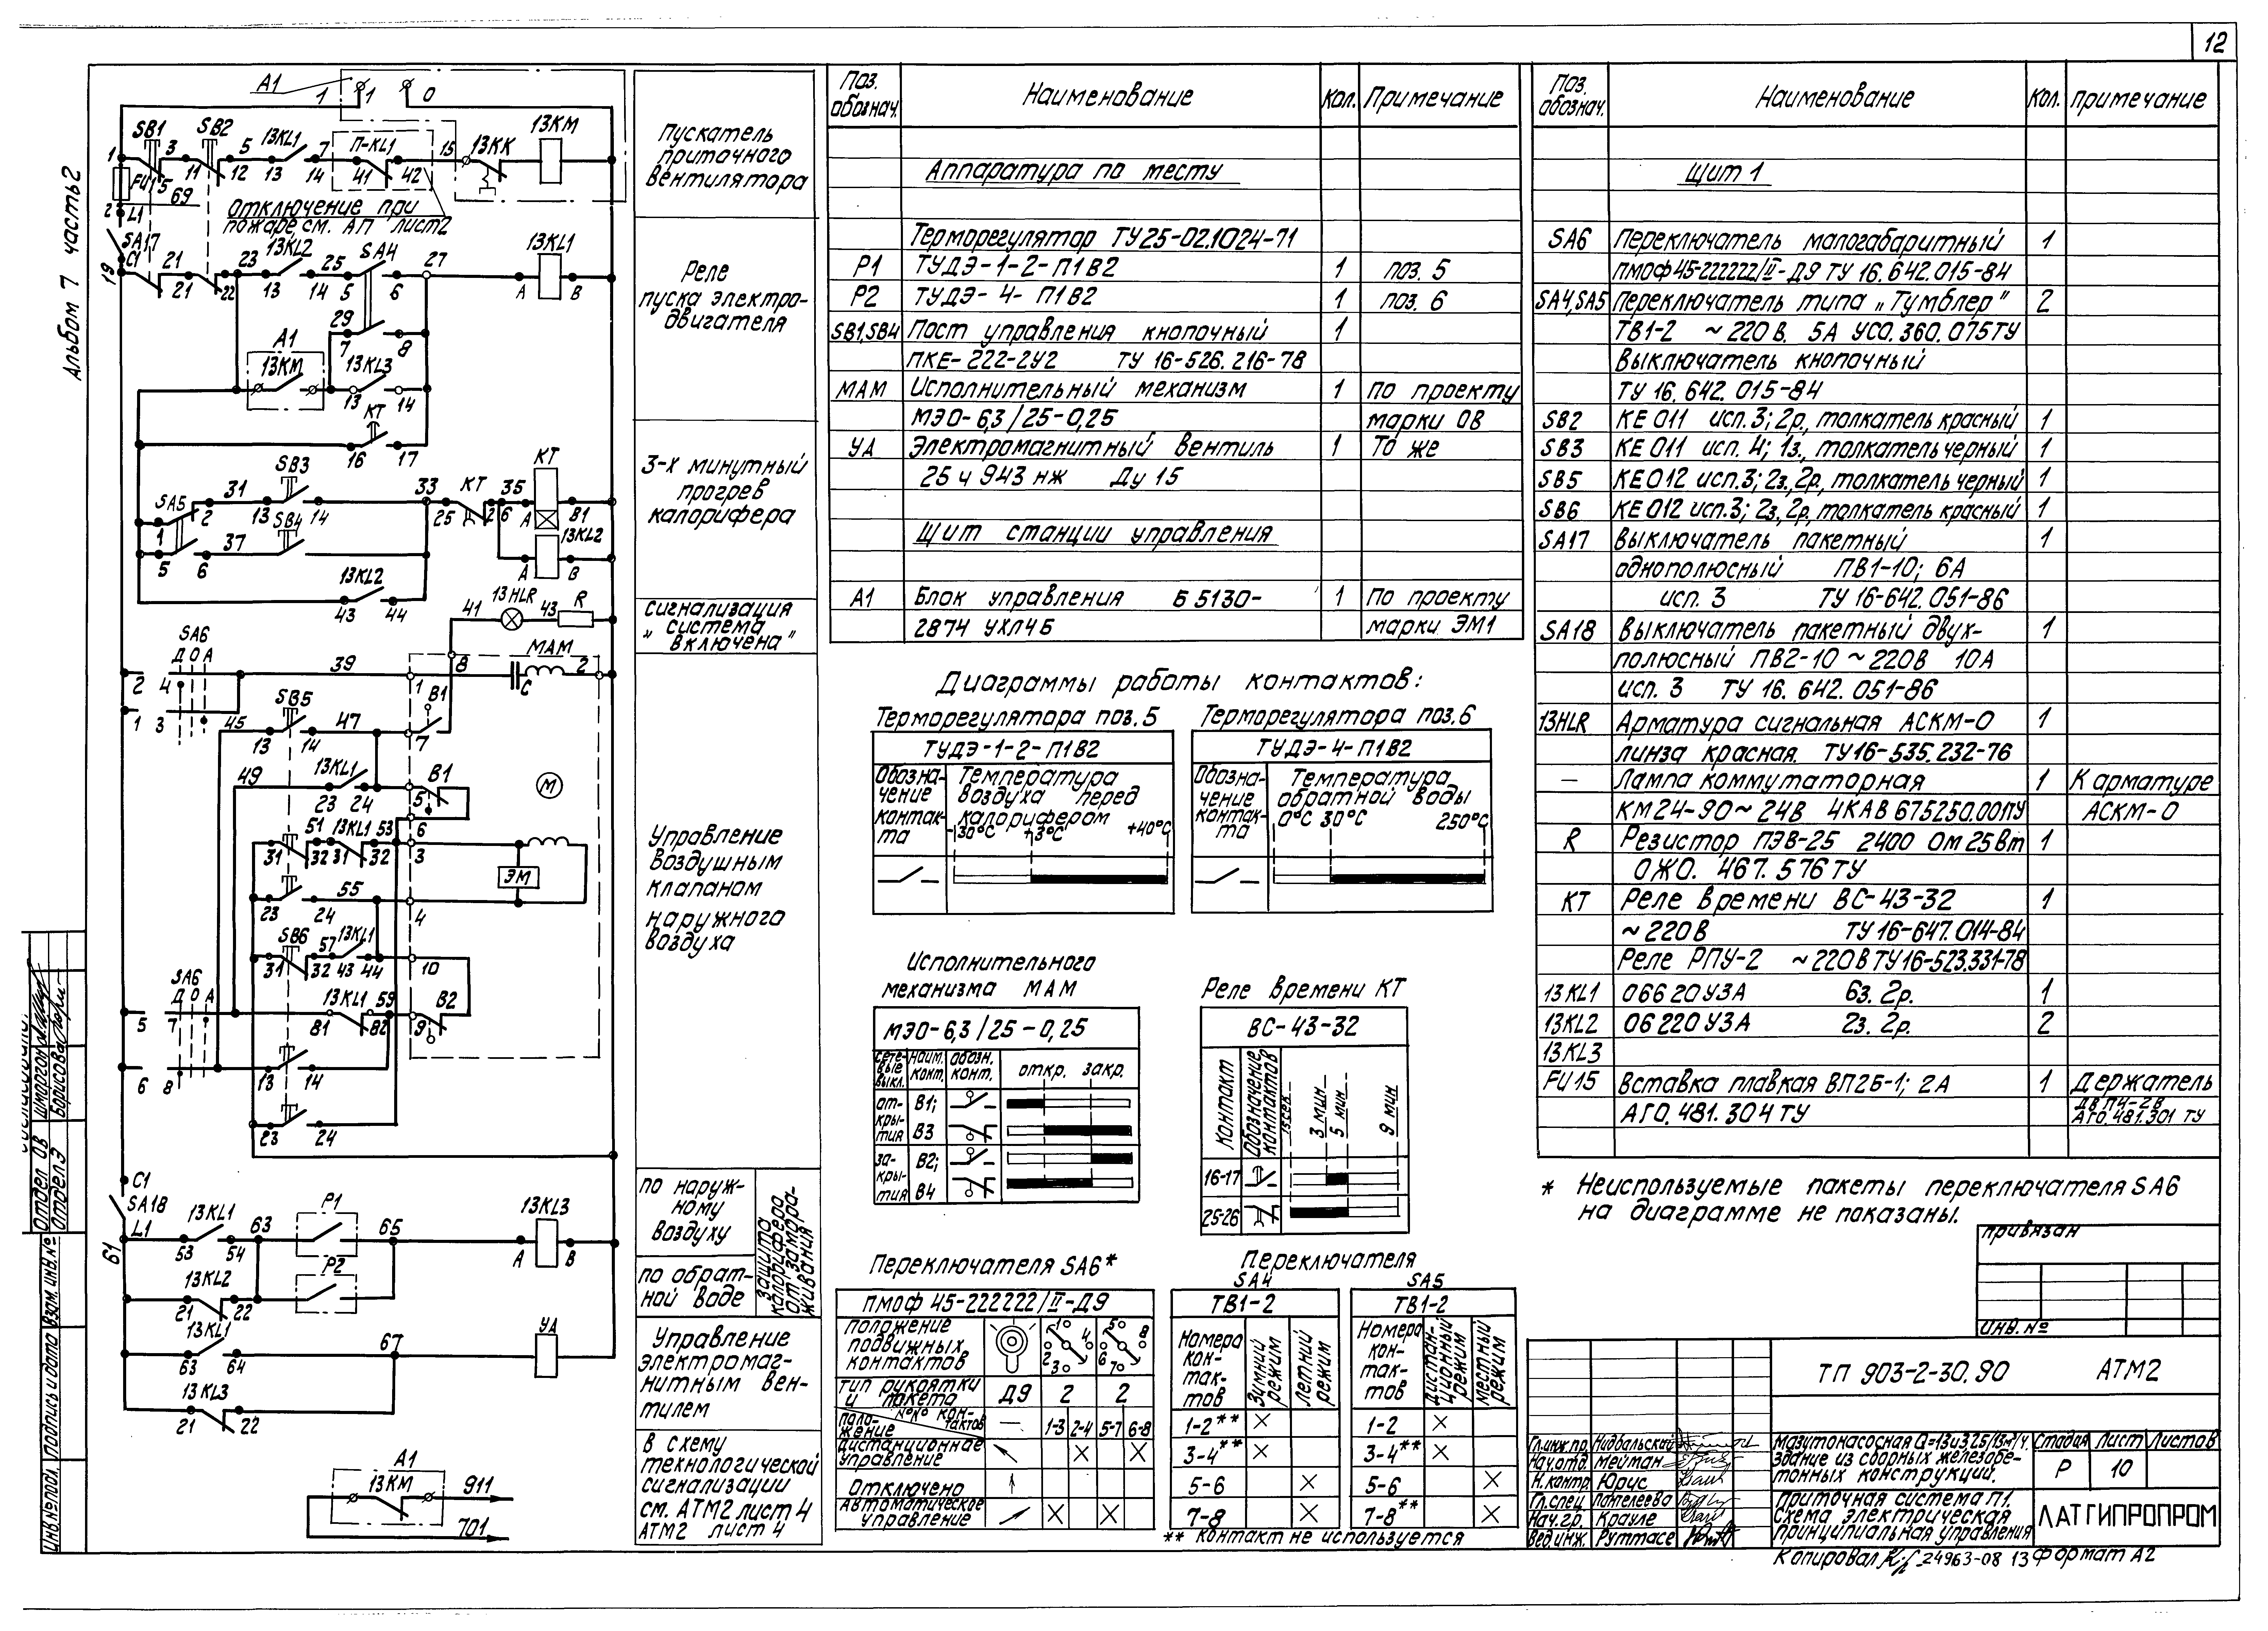 12
Альбом 7 часть 2
A1
1
1
0
SB1
SB2
13KL1
П-KL1
13KK
13KM
1
3
5
7
15
11
12
13
14
41
42
FU15
5
69
2
L1
Отключение при
пожаре, см. АП лист2
SA17
C1
19
21
21
22
23
13KL2
25
SA4
27
13KL1
13
14
5
6
A
B
29
7
8
A1
13KM
13KL3
13
14
KT
16
17
SB3
31
33
KT
35
KT
SA5
2
13
14
SB4
25
26
A
B1
1
13KL2
37
5
6
A
B
13KL2
43
44
13HLR
41
43
R
SA6
Д О А
МАМ
39
8
2
2
4
1
C
B1
1
3
SB5
45
47
13
14
7
49
13KL1
B1
M
23
24
5
6
51
13KL1
53
31
32
31
32
3
ЭМ
55
23
24
4
SB6
57
13KL1
31
32
43
44
10
SA6
Д О А
13KL1
59
B2
5
7
81
82
9
6
8
13
14
23
24
C1
SA18
L1
61
13KL1
63
P1
65
13KL3
53
54
A
B
13KL2
P2
21
22
13KL1
67
УА
63
64
13KL3
21
22
A1
13KM
911
701
Пускатель
приточного
вентилятора
Реле
пуска электро-
двигателя
3-х минутный
прогрев
калорифера
Сигнализация
„система
включена"
Управление
воздушным
клапаном
наружного
воздуха
по наруж-
ному
воздуху
по обрат-
ной воде
Защита
калорифера
от замора-
живания
Управление
электромаг-
нитным вен-
тилем
В схему
технологической
сигнализации
см. АТМ2 лист 4
АТМ2 лист 4
Поз. обознач. Наименование Кол. Примечание
Аппаратура по месту
Терморегулятор ТУ25-02.1024-71
P1 ТУДЭ-1-2-П1В2 1 поз. 5
P2 ТУДЭ-4-П1В2 1 поз. 6
SB1,SB4 Пост управления кнопочный 1
ПКЕ-222-2У2 ТУ 16-526.216-78
МАМ Исполнительный механизм 1 По проекту
МЭО-6,3/25-0,25 марки ОВ
УА Электромагнитный вентиль 1 То же
25 ч 943 нж Ду 15
Щит станции управления
A1 Блок управления Б5130- 1 По проекту
2874 УХЛ4Б марки ЭМ1
Диаграммы работы контактов:
Терморегулятора поз. 5
ТУДЭ-1-2-П1В2
Обозна-
чение
контак-
та
Температура
воздуха перед
калорифером
-30°С +3°С +40°С
Терморегулятора поз.6
ТУДЭ-4-П1В2
Обозна-
чение
контак-
та
Температура
обратной воды
0°С 30°С 250°С
Исполнительного
механизма МАМ
МЭО-6,3/25-0,25
Сете-
вые
выкл.
Наим.
конт.
обозн.
конт.
откр. закр.
от-
кры-
тия
B1;
B3
за-
кры-
тия
B2;
B4
Реле времени КТ
ВС-43-32
Контакт
Обозначение
контактов
15сек
3 мин
5 мин
9 мин
16-17
25-26
Переключателя SA6*
ПМОФ 45-222222/II-Д9
положение
подвижных
контактов
1 4 2 3
5 8 6 7
тип рукоятки
и пакета
Д9 2 2
поло-
жение
№№ кон-
тактов
— 1-3 2-4 5-7 6-8
дистанционное
управление
× ×
Отключено
Автоматическое
управление
× ×
Переключателя
SA4
ТВ1-2
Номера
кон-
так-
тов
Зимний
режим
Летний
режим
1-2** ×
3-4** ×
5-6 ×
7-8 ×
SA5
ТВ1-2
Номера
кон-
так-
тов
Дистан-
ционный
режим
Местный
режим
1-2 ×
3-4** ×
5-6 ×
7-8** ×
** контакт не используется
Поз. обознач. Наименование Кол. Примечание
Щит 1
SA6 Переключатель малогабаритный 1
ПМОФ45-222222/II-Д9 ТУ 16.642.015-84
SA4,SA5 Переключатель типа „Тумблер" 2
ТВ1-2 ~220 В. 5А УСО.360.075ТУ
Выключатель кнопочный
ТУ 16.642.015-84
SB2 КЕ 011 исп. 3; 2р, толкатель красный 1
SB3 КЕ 011 исп. 4; 1з., толкатель черный 1
SB5 КЕ012 исп.3; 2з., 2р., толкатель черный 1
SB6 КЕ 012 исп.3; 2з, 2р, толкатель красный 1
SA17 Выключатель пакетный 1
однополюсный ПВ1-10; 6А
исп. 3 ТУ 16-642.051-86
SA18 Выключатель пакетный двух- 1
полюсный ПВ2-10 ~220В 10А
исп. 3 ТУ 16.642.051-86
13HLR Арматура сигнальная АСКМ-0 1
линза красная. ТУ16-535.232-76
— Лампа коммутаторная 1 К арматуре
КМ24-90~24В 4КАВ 675250.00ПУ АСКМ-0
R Резистор ПЭВ-25 2400 Ом 25Вт 1
ОЖО.467.576 ТУ
КТ Реле времени ВС-43-32 1
~220В ТУ 16-647.014-84
Реле РПУ-2 ~220В ТУ16-523.331-78
13KL1 06620У3А 6з. 2р. 1
13KL2 06220У3А 2з. 2р. 2
13KL3
FU15 Вставка плавкая ВП2Б-1; 2А 1 Держатель
АГО.481.304 ТУ ДВП4-2В
АГО.481.301 ТУ
* Неиспользуемые пакеты переключателя SA6
на диаграмме не показаны.
привязан
инв. №
ТП 903-2-30.90 АТМ2
Гл.инж.пр. Нидбальский
Нач.отд. Мейтман
Н.контр. Юрус
Гл.спец. Пантелеева
Нач.гр. Крауле
Вед.инж. Руттасе
Мазутонасосная Q=13и3,25/13м³/ч.
Здание из сборных железобе-
тонных конструкций.
Стадия Лист Листов
Р 10
Приточная система П1.
Схема электрическая
принципиальная управления
ЛАТГИПРОПРОМ
Копировал 24963-08 13 Формат А2
Отдел ОВ
Отдел Э
Борисова
Взам. инв. №
Подпись и дата
Инв. № подл.